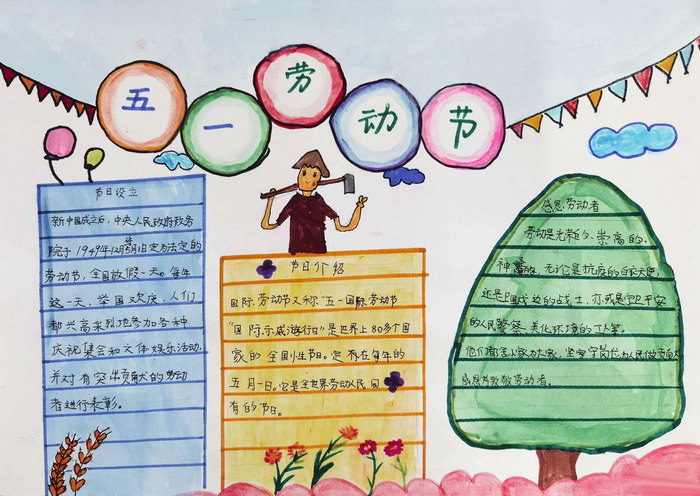 五一劳动节
节日设立
新中国成立后，中央人民政府政务
院于1949年12月 旧定为法定的
劳动节，全国放假一天。每年
这一天，举国欢庆，人们
都兴高采烈地参加各种
庆祝集会和文体娱乐活动，
并对有突出贡献的劳动
者进行表彰。
节日介绍
国际劳动节又称"五一国际劳动节
"国际示威游行日"是世界上80多个国
家的全国小生节日。定 在每年的
五月一日。它是全世界劳动人民 同
有的节日。
感恩劳动者
劳动是光荣的、崇高的、
神 。无论是抗疫的白衣天使，
还是 的战士，亦或是守卫平安
的人民警察、美化环境的工人等。
他们 小家为大家，坚守 位为人民做贡献
感恩 致敬劳动者。